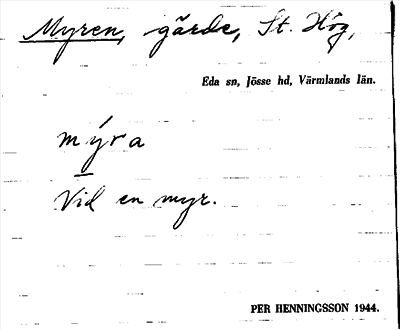 Myren, gärde, St. Hög,
Eda sn, Jösse hd, Värmlands län.
mýra
Vid en myr.
PER HENNINGSSON 1944.